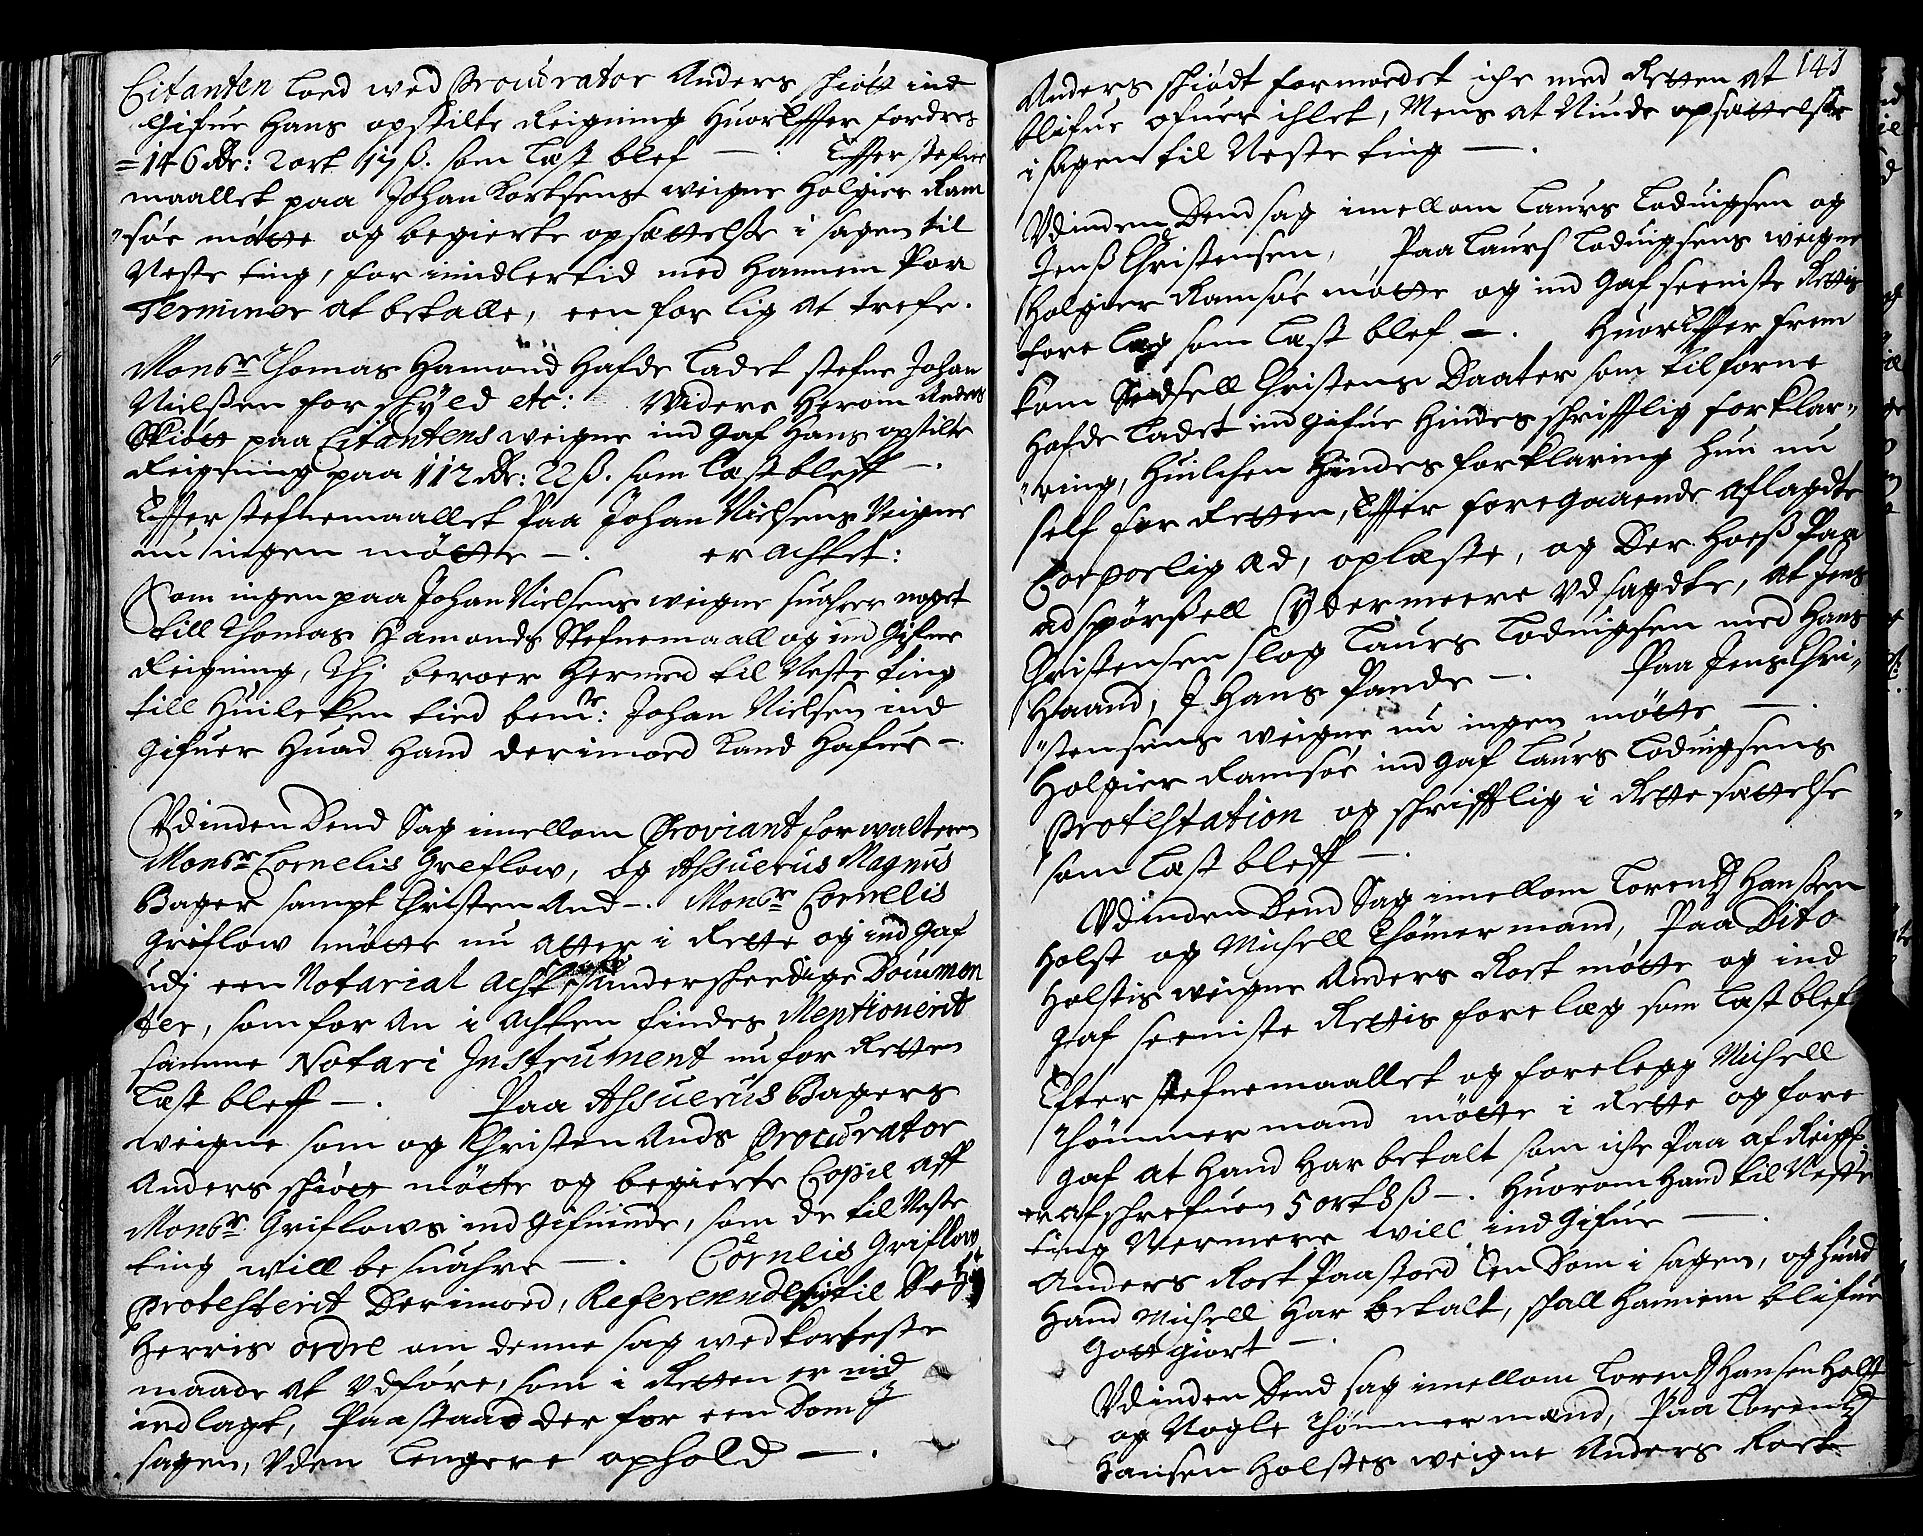 Citanten loed wed Procurator Anders Skiøtt ind
Gifue hans opstilte Reigning huorEffter fordres
=146 dr: 2 ort 17 ß. som Læst blef —. Effter stefne
maallet paa Johan Kortsens weigne Holgier Ram
"søe møtte og begierte opsættelsse i sagen til
Neste ting, for imidlertid med hannem Por
Terminer at betalle, een for lig at trefe.
Monsr. Thomas Hamond hafde Ladet stefne Johan
Nielssen for skyld etc: Widere herom Anders
Skiøtt paa Citantens weigne ind Gaf hans opstilte
Reigning paa 112 dr: 22 ß. som Læst bleff —.
Effter stefnemaallet Paa Johan Nielsens Veigne
nu ingen møtte —. er Achtet:
Som ingen paa Johan Nielsens weigne suahrer noget
till Thomas Hamonds Stefnemaall og ind Gifne
Reigning, Thj beroer hermed til Neste ting
till huilcken tied bemte: Johan Nielsen ind
Gifuer huad hand derimoed Kand hafue —.
Vdinden Dend Sag imellom Proviantforwalteren
Monsr. Cornelis Greflow, og Assuerus Magnus
Bager sampt Christen And —. Monsr. Cornelis
Griflow møtte nu Atter i Rette og ind Gaf
udj een Notarial Acht underskeedige Documen
ter, som for An i Achten findes Mentionerit
samme Notari Instrument nu for Retten
Læst bleff —. Paa Assuerus Bagers
weigne som og Christen Ands Procurator
Anders Skiøtt møtte og begierte Copie Aff
Monsr. Griflows ind Gifuinde, som de til Neste
ting will besuahre —. Cornlis Griflow
Protesterit Derimoed, Referendes sig til
Herris ordre om denne sag wed korteste
maade at Vdføre, som i Retten er
indlagt, Paastaaed der for een Dom J
sagen, Vden Lengere ophold —.
143
Anders Skiødt formoedet iche med Retten at
blifue ofuer ihlet, Mens at Niude opsættelsse
i sagen til Neste ting —.
Vdinden Dend sag imellom Laurs Loduigsen og
Jenß Christensen, Paa Laurs Loduigsens weigne
Holgier Ramsøe møtte og ind Gaf seeniste Rettis
fore læg som Læst blef —. HuorEffter frem
kom Sedsell Christens Daater som tilforne
hafde Ladet ind Gifue hindes skrifftlig forklar"
"ring, huilchen hindes forklaring hun nu
self for Retten, Effter foregaaende Aflagdte
Corporlig Æd, oplæste, og Der hoeß Paa
ad spørßell Ydermeere Vdsagdte, at Jens
Christensen slog Laurs Loduigsen med hans
Haand, J hans Pande —. Paa Jens Chri"
"stensens weigne nu ingen møtte —.
Holgier Ramsøe ind Gaf Laurs Loduigsens
Protestation og skrifftlig i Rette sættelse
som Læst bleff —.
Vdinden Dend Sag imellom Lorentz Hanßen
Holst og Michell Tømmermand, Paa Dito
Holstis weigne Anders Kork møtte og ind
Gaf seeniste Rettis forelæg som Læst blef
Efter stefnemaallet og forelegg Michell
Thømmermand møtte i Rette og fore
Gaf at hand har betalt som iche Paa af Reigg
er afschrefuen 5 ort 8 ß —. Huorom hand til Neste
ting Nermere will indgifue —.
Anders Kork Paastoed Een Dom i sagen, og huad
hand Michell har betalt, skall hannem blifue
Gott giort —.
Vdinden Dend sag imellom Lorentz Hansen Holst
og Nogle Thømmer mænd, Paa Lorentz
Hansen Holstes weigne Anders Kork